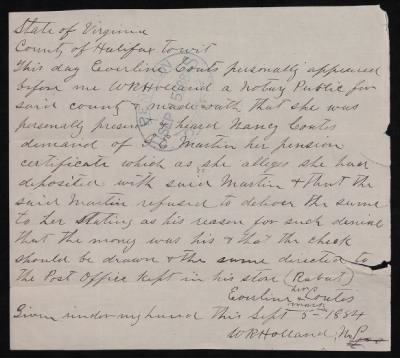 State of Virginia
County of Halifax towit
This day Everline Couts personally appeared
before me WR Holland a Notary Public for
said county & made oath that she was
personally present & heard Nancy Coutes
demand of Martin her pension
certificate which as she alleges she had
deposited with said Martin & that the
said Martin refused to deliver the same
to her stating as his reason for such denial
that the money was his & that the check
should be drawn & the same direction to
the Post Office kept in his store (Rabat)
Everline her x mark Coutes
Given under my hand this Sept 5 - 1884
WR Holland, N.P.